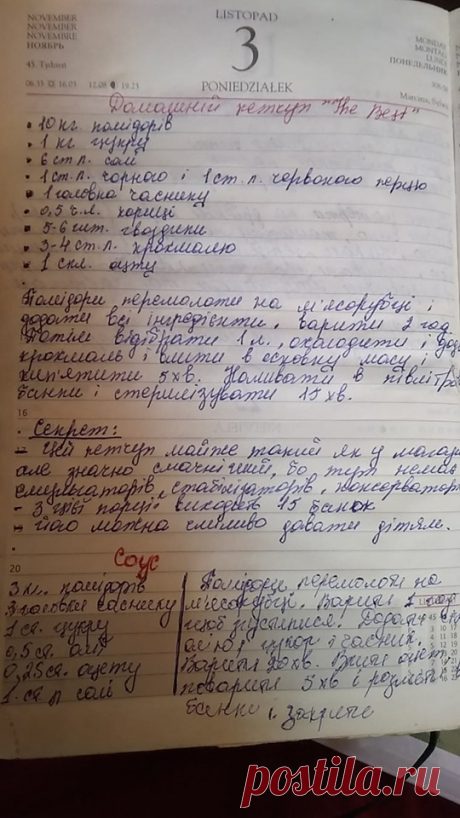 NOVEMBER
NOVEMBER
NOVEMBRE
НОЯБРЬ
45. Tydzień
LISTOPAD
3
PONIEDZIAŁEK
MONDAY
MONTAG
LUNDI
ПОНЕДЕЛЬНИК
Домашній кетчуп "The Best"
• 10 кг. помідорів
• 1 кг. цукру
• 6 ст.л. солі
• 1 ст.л. чорного і 1 ст.л. червоного перцю
• 1 головка часнику
• 0,5 ч.л. кориці
• 5-6 шт. гвоздики
• 3-4 ст.л. крохмалю
• 1 скл. оцту
Помідори перемолоти на м'ясорубці і
додати всі інгредієнти. Варити 2 год.
Потім відібрати 1 л., охолодити і
крохмаль і влити в основну масу і
кип'ятити 5 хв. Наливати в півлітр
банки і стерилізувати 15 хв.
16
• Секрет:
- Цей кетчуп майже такий як у магаз
але значно смачніший, бо тут немає
емульгаторів, стабілізаторів, консерватор
- З цієї порції виходить 15 банок
- його можна сміливо давати дітям.
20
Соус
3 кг. помідорів
3 головки часнику
1 ст. цукру
0,5 ст. олії
0,25 ст. оцету
1 ст л солі
Помідори перемолоти на
м'ясорубці. Варити 1
щоб згустилися. Додати
олію, цукор і часник.
Варити 20 хв. Влити оцет,
поварити 5 хв і розлити в
банки і закрити
postila.ru